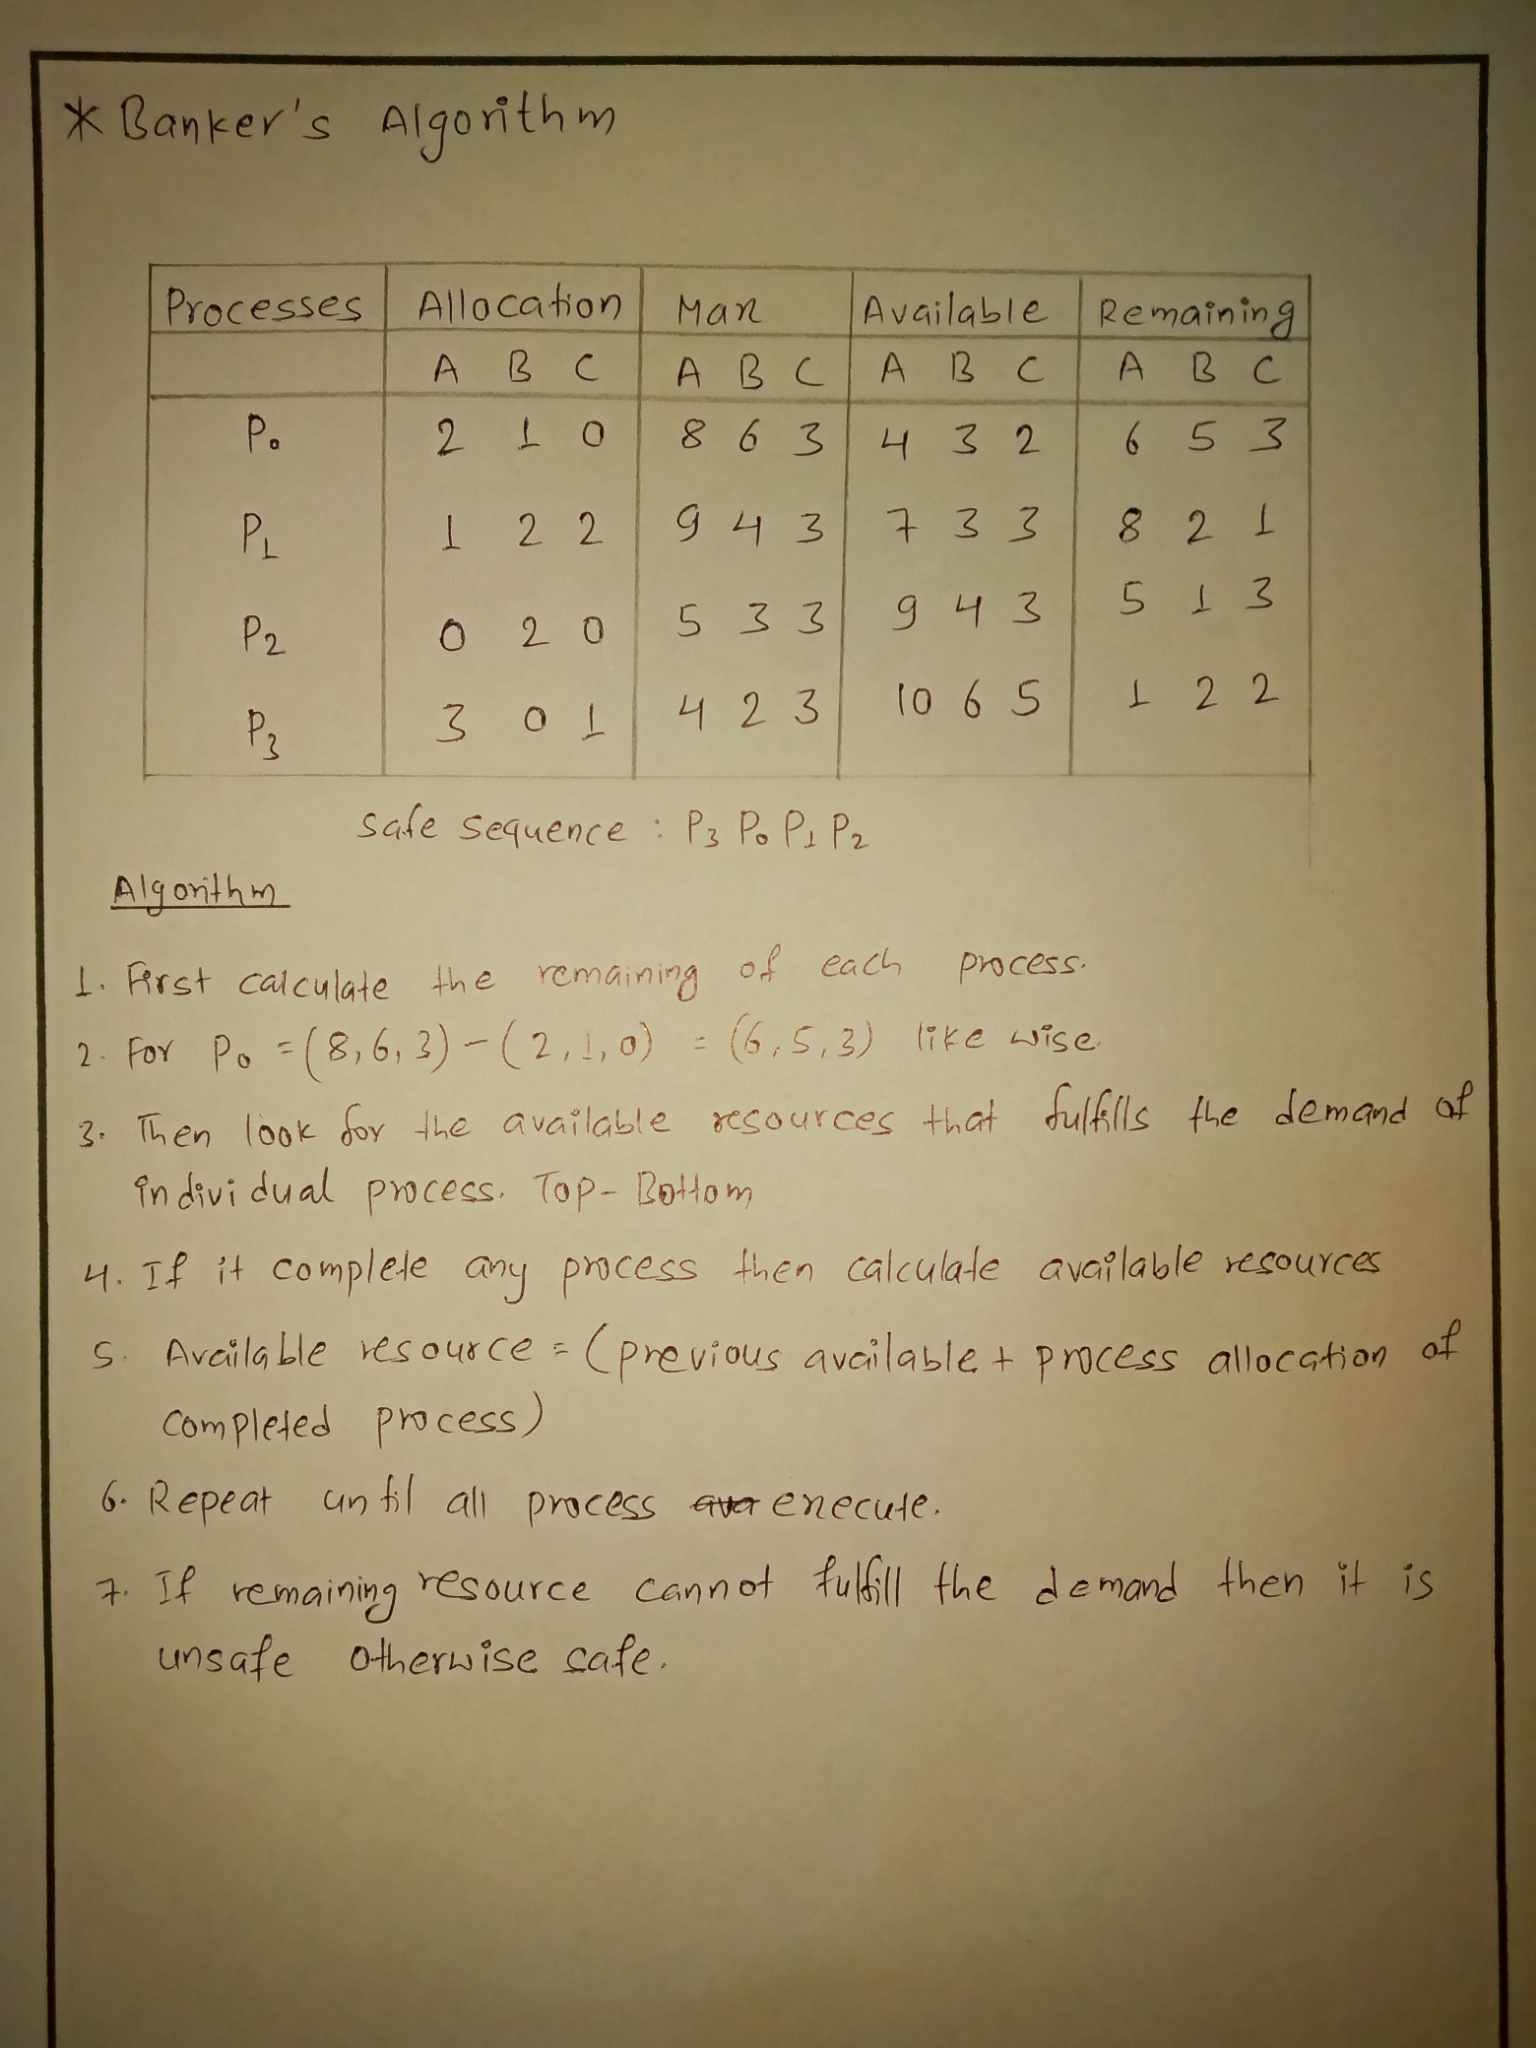 * Banker's Algorithm
Processes Allocation Max Available Remaining
A B C A B C A B C A B C
P0 2 1 0 8 6 3 4 3 2 6 5 3
P1 1 2 2 9 4 3 7 3 3 8 2 1
P2 0 2 0 5 3 3 9 4 3 5 1 3
P3 3 0 1 4 2 3 10 6 5 1 2 2
safe sequence : P3 P0 P1 P2
Algorithm
1. First calculate the remaining of each process.
2. For P0 = (8,6,3) - (2,1,0) = (6,5,3) like wise.
3. Then look for the available resources that fulfills the demand of
individual process. Top-Bottom
4. If it complete any process then calculate available resources
5. Available resource = (previous available + process allocation of
completed process)
6. Repeat until all process ava execute.
7. If remaining resource cannot fulfill the demand then it is
unsafe otherwise safe.